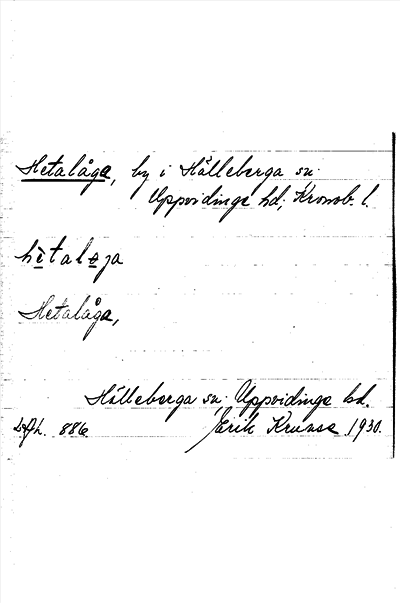 Hetalåga, by i Hälleberga sn.
Uppvidinge hd; Kronob. l.
hètaloga
Hetalåga,
Hälleberga sn; Uppvidinge hd.
886 Erik Kruuse 1930.